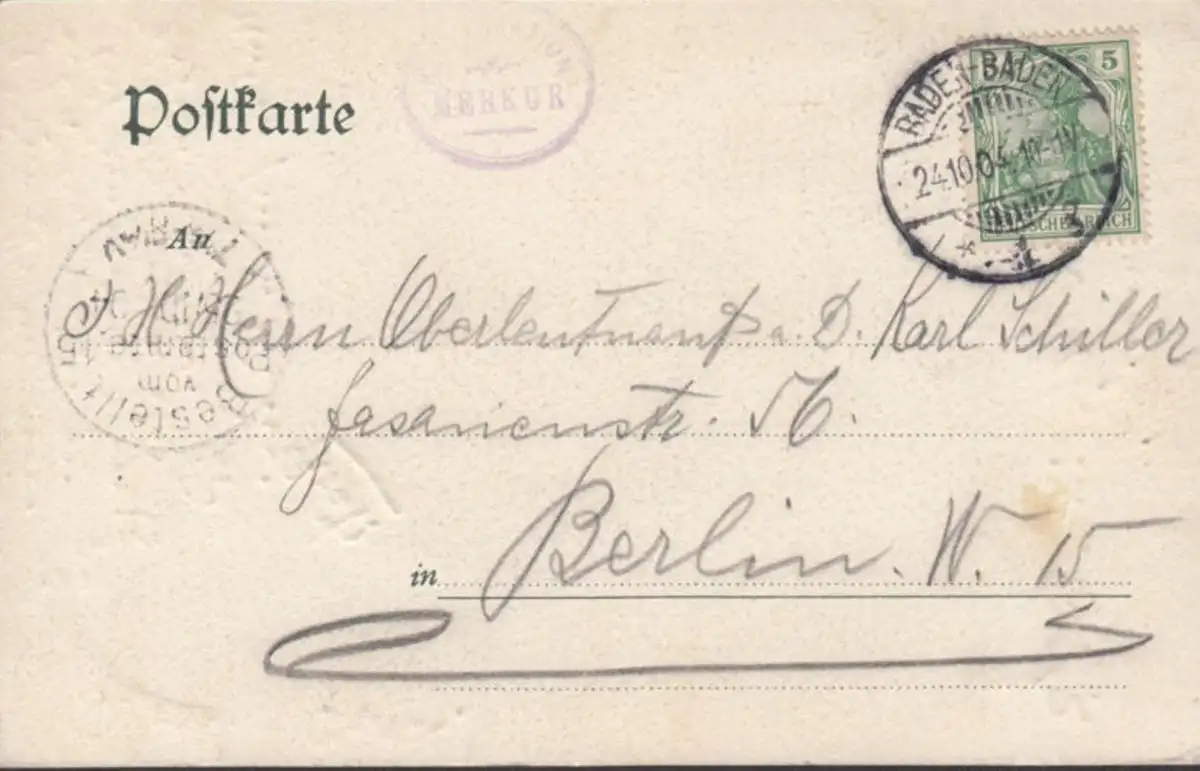 MERKUR
Postkarte
5
BADEN-BADEN
24.10.04.
* 1
An
S. H. Herrn Oberleutnant a. D. Karl Schiller
Fasanenstr. 56.
in Berlin. W. 15
Bestellt
vom
Postamte 15